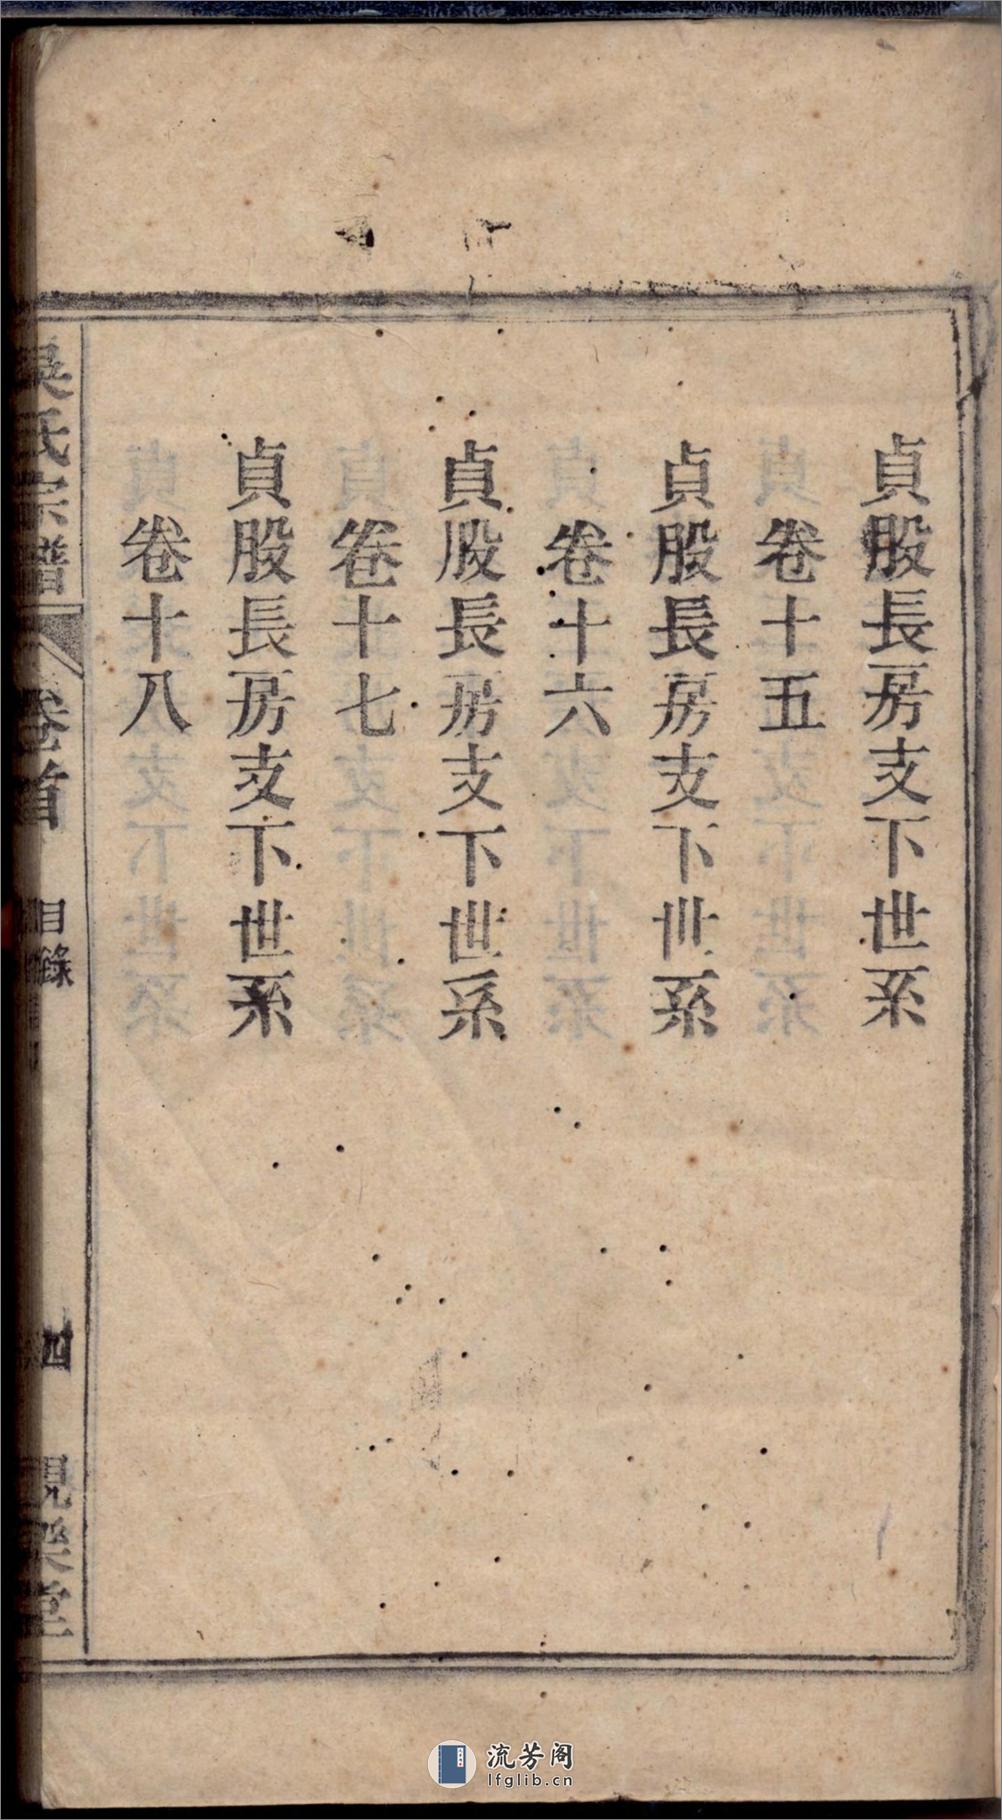 貞股長房支下世系
卷十五
貞股長房支下世系
卷十六
貞股長房支下世系
卷十七
貞股長房支下世系
卷十八
吳氏宗譜
卷首
目錄
四
堂
流芳阁
lfglib.cn